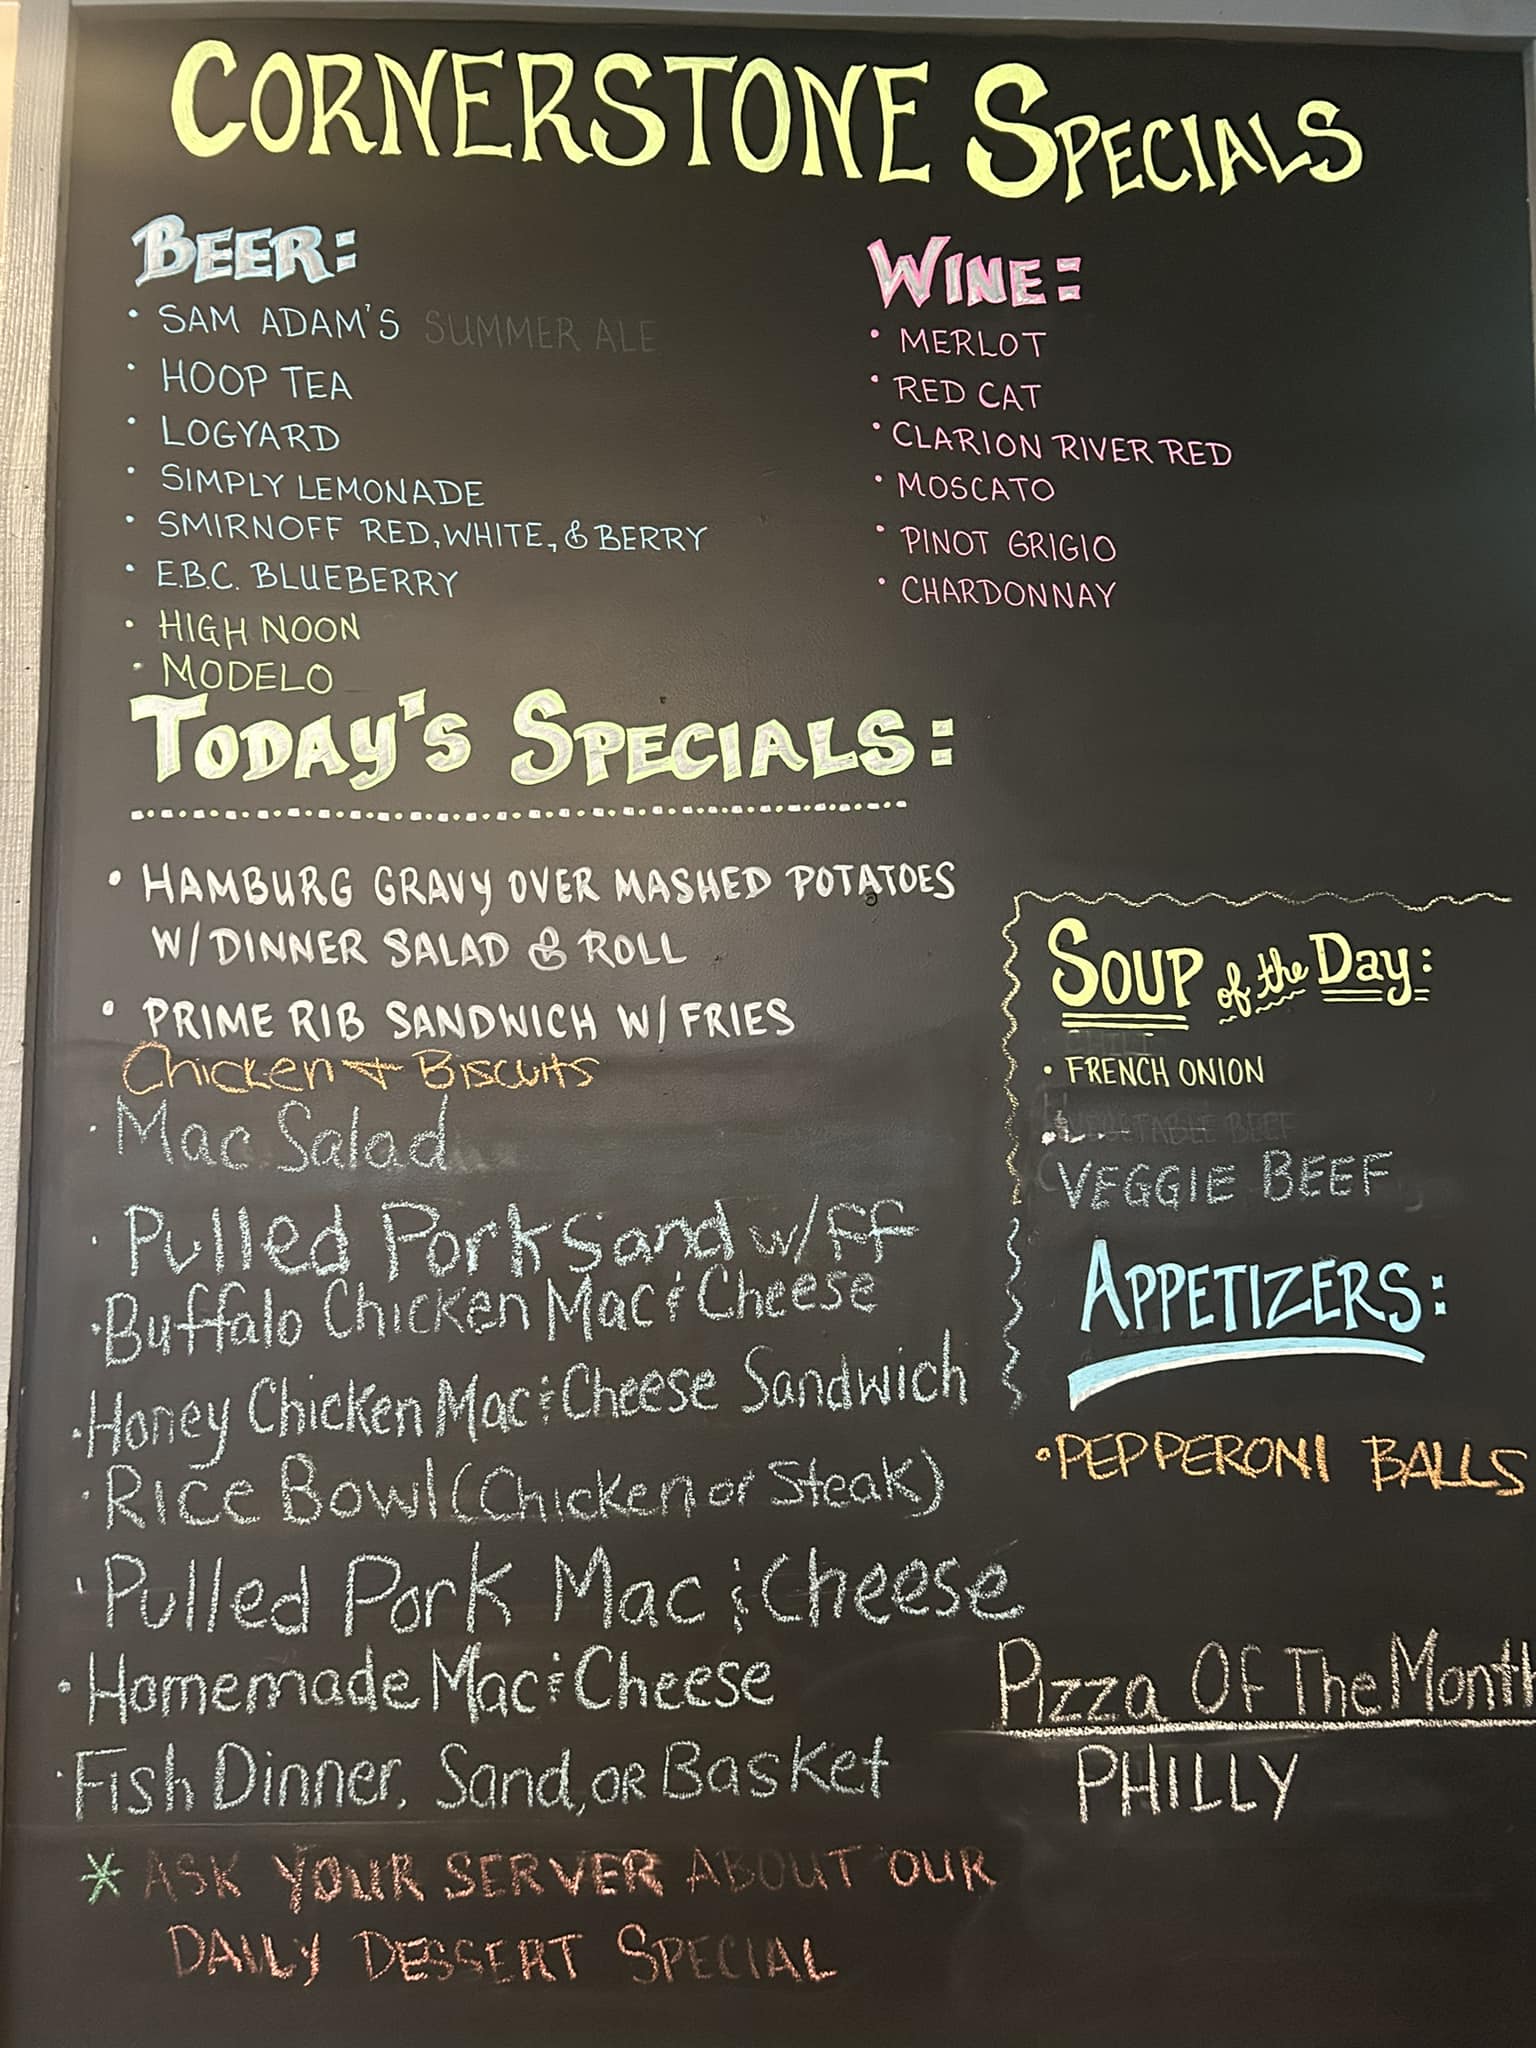 CORNERSTONE SPECIALS
BEER:
• SAM ADAM'S SUMMER ALE
• HOOP TEA
• LOGYARD
• SIMPLY LEMONADE
• SMIRNOFF RED, WHITE, & BERRY
• E.B.C. BLUEBERRY
• HIGH NOON
• MODELO
WINE:
• MERLOT
• RED CAT
• CLARION RIVER RED
• MOSCATO
• PINOT GRIGIO
• CHARDONNAY
TODAY'S SPECIALS:
• HAMBURG GRAVY OVER MASHED POTATOES
W/ DINNER SALAD & ROLL
• PRIME RIB SANDWICH W/ FRIES
Chicken + Biscuits
• Mac Salad
• Pulled Pork Sand w/ FF
• Buffalo Chicken Mac & Cheese
• Honey Chicken Mac & Cheese Sandwich
• Rice Bowl (Chicken or Steak)
• Pulled Pork Mac & Cheese
• Homemade Mac & Cheese
• Fish Dinner, Sand, or Basket
* ASK YOUR SERVER ABOUT OUR
DAILY DESSERT SPECIAL
SOUP of the Day:
CHILI
• FRENCH ONION
VEGETABLE BEEF
VEGGIE BEEF
APPETIZERS:
• PEPPERONI BALLS
Pizza Of The Month
PHILLY